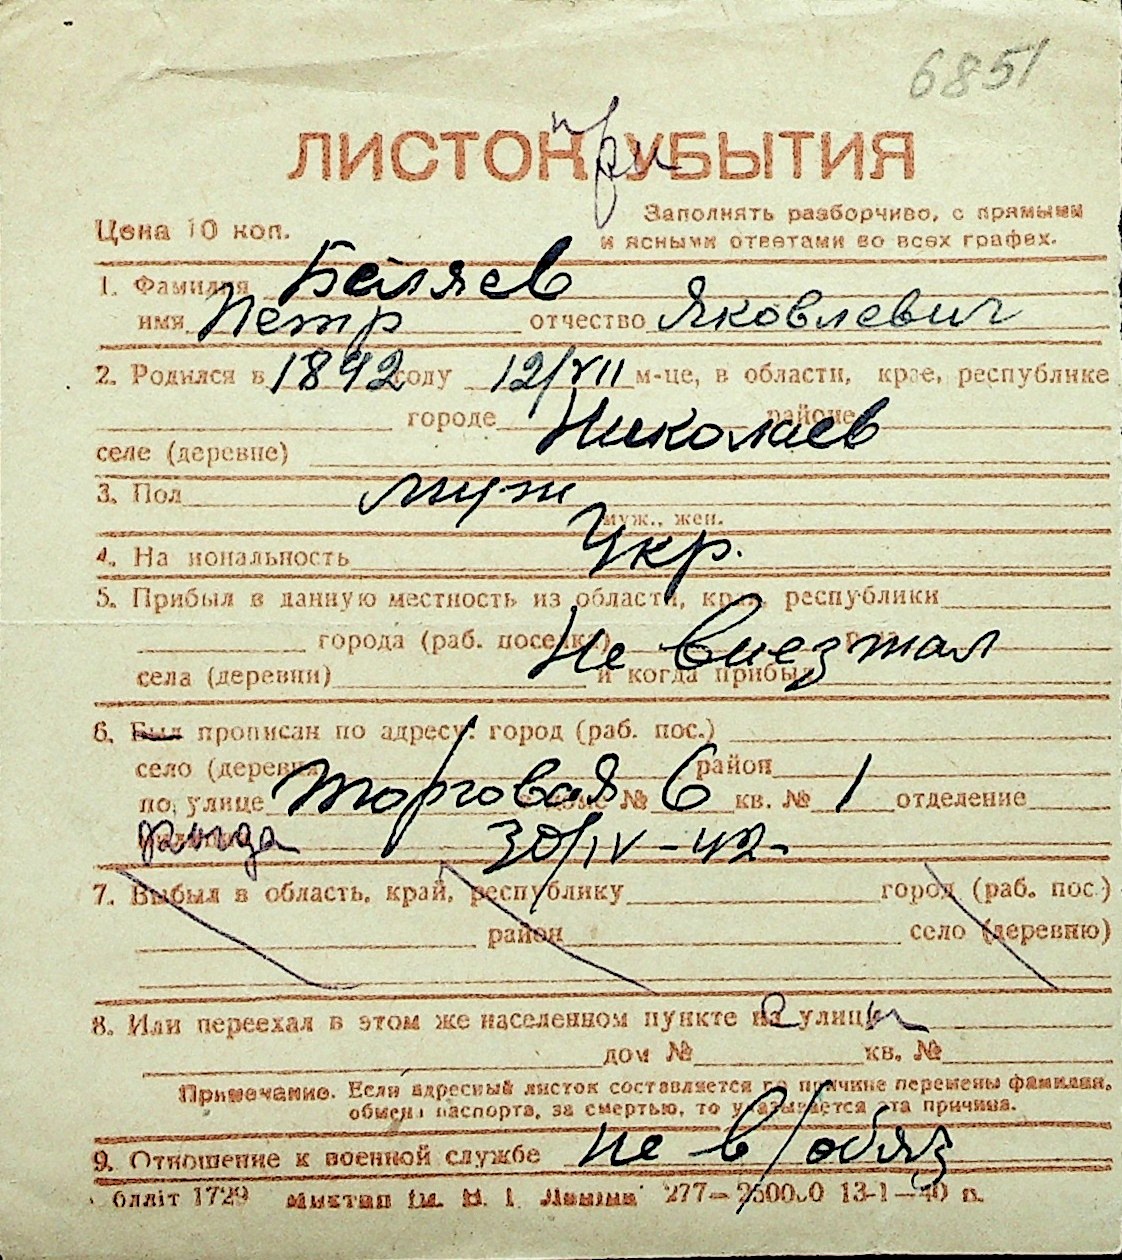 6851
ЛИСТОК УБЫТИЯ
при
Цена 10 коп.
Заполнять разборчиво, с прямыми
и ясными ответами во всех графах.
1. Фамилия Беляев
имя Петр отчество Яковлевич
2. Родился в 1892 году 12/VII м-це, в области, крае, республике
городе Николаев районе
селе (деревне)
3. Пол муж
муж., жен.
4. На иональность Укр.
5. Прибыл в данную местность из области, края, республики
города (раб. поселка) Не виезжал
села (деревни) и когда прибыл
6. Был прописан по адресу: город (раб. пос.)
село (деревня) район
по улице Торговая 6 кв. № 1 отделение
30/IV-42-
7. Выбыл в область, край, республику город (раб. пос.)
район село (деревню)
8. Или переехал в этом же населенном пункте на улицу
дом № кв. №
Примечание. Если адресный листок составляется по причине перемены фамилии,
обмена паспорта, за смертью, то указывается эта причина.
9. Отношение к военной службе не в/обяз
1729 277— 13-1—40 п.